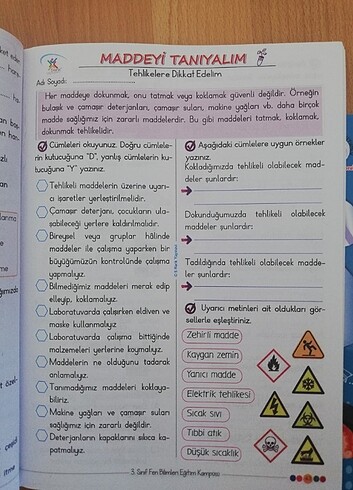 MADDEYİ TANIYALIM
Adı Soyadı:
Tehlikelere Dikkat Edelim
Her maddeye dokunmak, onu tatmak veya koklamak güvenli değildir. Örneğin
bulaşık ve çamaşır deterjanları, çamaşır suları, makine yağları vb. daha birçok
madde sağlığımız için zararlı maddelerdir. Bu gibi maddeleri tatmak, koklamak,
dokunmak tehlikelidir.
Cümleleri okuyunuz. Doğru cümlele-
rin kutucuğuna "D", yanlış cümlelerin ku-
tucuğuna "Y" yazınız.
Tehlikeli maddelerin üzerine uyarı-
cı işaretler yerleştirilmelidir.
Çamaşır deterjanı, çocukların ula-
şabileceği yerlere kaldırılmalıdır.
Bireysel veya gruplar hâlinde
maddeler ile çalışma yaparken bir
büyüğümüzün kontrolünde çalışma
yapmalıyız.
Bilmediğimiz maddeleri merak edip
elleyip, koklamalıyız.
Laboratuvarda çalışırken eldiven ve
maske kullanmalıyız
Laboratuvarda çalışma bittiğinde
malzemeleri yerlerine koymalıyız.
Maddelerin ne olduğunu tadarak
anlamalıyız.
Tanımadığımız maddeleri koklaya-
biliriz.
Makine yağları ve çamaşır suları
sağlığımız için zararlı değildir.
Deterjanların kapaklarını sıkıca ka-
patmalıyız.
Aşağıdaki cümlelere uygun örnekler
yazınız.
Kokladığımızda tehlikeli olabilecek mad-
deler şunlardır:
Dokunduğumuzda tehlikeli olabilecek
maddeler şunlardır:
Tadıldığında tehlikeli olabilecek madde-
ler şunlardır:
Uyarıcı metinleri ait oldukları gör-
sellerle eşleştiriniz.
Zehirli madde
Kaygan zemin
Yanıcı madde
Elektrik tehlikesi
Sıcak sıvı
Tıbbi atık
Düşük sıcaklık
3. Sınıf Fen Bilimleri Eğitim Kampüsü